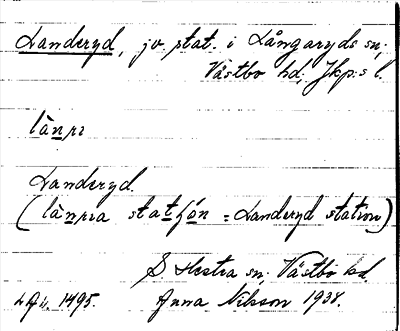 Landeryd, jv.stat. i Långaryds sn;
Västbo hd; Jkp:s l.
lànrı
Landeryd.
(lànrıa statʃón = Landeryd station)
S Hestra sn; Västbo hd.
1495. Anna Nilsson 1934.